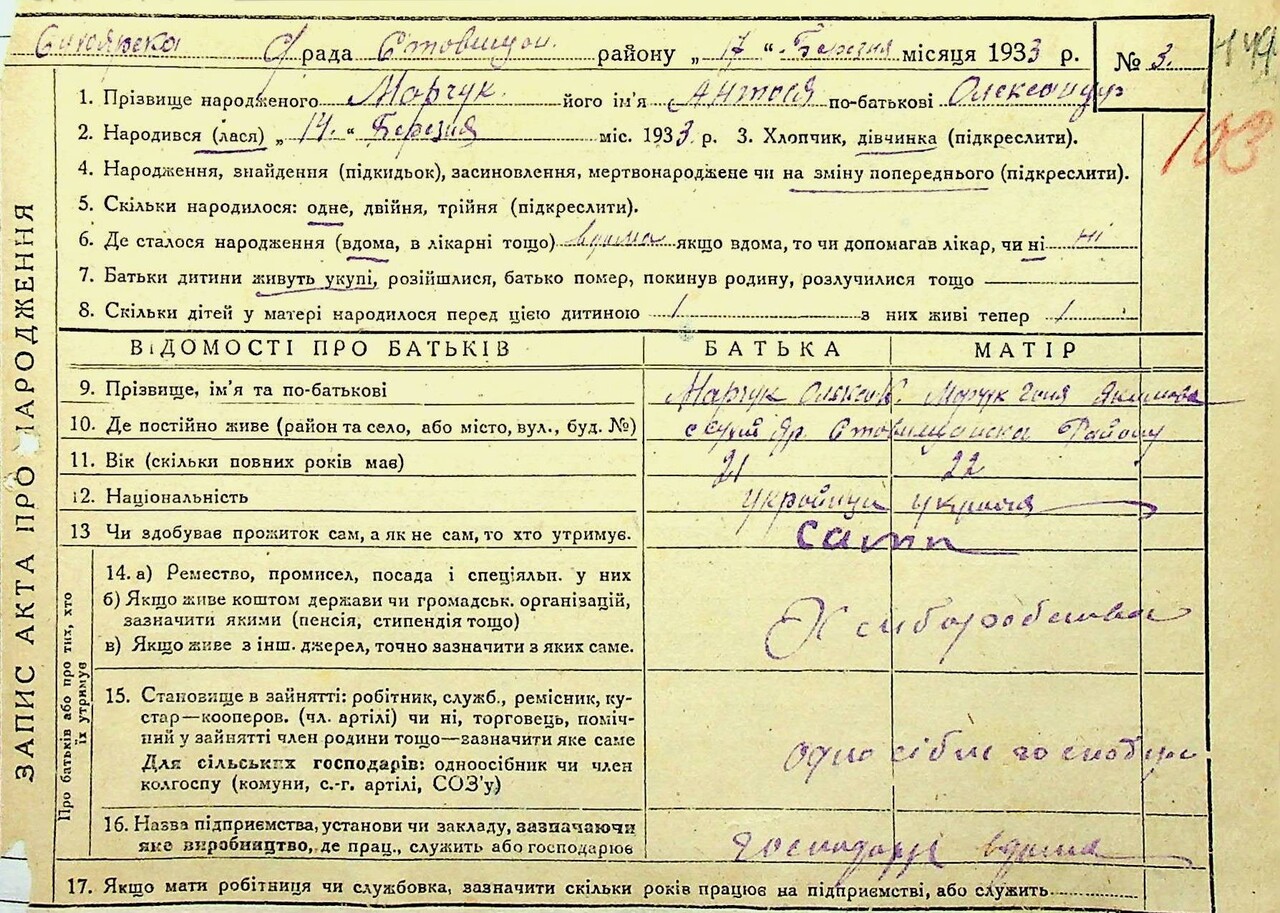 рада Стовищан. району „17“ Березня місяця 1933 р. № 3.
1. Прізвище народженого Марчук його ім'я Антося по-батькові Олександр
2. Народився (лася) „14“ Березня міс. 1933 р. 3. Хлопчик, дівчинка (підкреслити).
103
4. Народження, знайдення (підкидьок), засиновлення, мертвонароджене чи на зміну попереднього (підкреслити).
5. Скільки народилося: одне, двійня, трійня (підкреслити).
6. Де сталося народження (вдома, в лікарні тощо) вдома якщо вдома, то чи допомагав лікар, чи ні ні
7. Батьки дитини живуть укупі, розійшлися, батько помер, покинув родину, розлучилися тощо
8. Скільки дітей у матері народилося перед цією дитиною 1 з них живі тепер 1
ВІДОМОСТІ ПРО БАТЬКІВ БАТЬКА МАТІР
9. Прізвище, ім'я та по-батькові Марчук Олексан. Марчук Якимова
10. Де постійно живе (район та село, або місто, вул., буд. №) Яр. Району
11. Вік (скільки повних років має) 21 22
12. Національність україн
13 Чи здобував прожиток сам, а як не сам, то хто утримує. сами
14. а) Ремество, промисел, посада і спеціяльн. у них
б) Якщо живе коштом держави чи громадськ. організацій,
зазначити якими (пенсія, стипендія тощо)
в) Якщо живе з інш. джерел, точно зазначити з яких саме.
15. Становище в зайнятті: робітник, служб., ремісник, ку-
стар—кооперов. (чл. артілі) чи ні, торговець, поміч-
ний у зайнятті член родини тощо—зазначити яке саме
Для сільських господарів: одноосібник чи член
колгоспу (комуни, с.-г. артілі, СОЗ'у)
16. Назва підприємства, установи чи закладу, зазначаючи
яке виробництво, де прац., служить або господарює вдома
17. Якщо мати робітниця чи службовка, зазначити скільки років працює на підприємстві, або служить
ЗАПИС АКТА ПРО НАРОДЖЕННЯ
Про батьків або про тих, хто
їх утримує